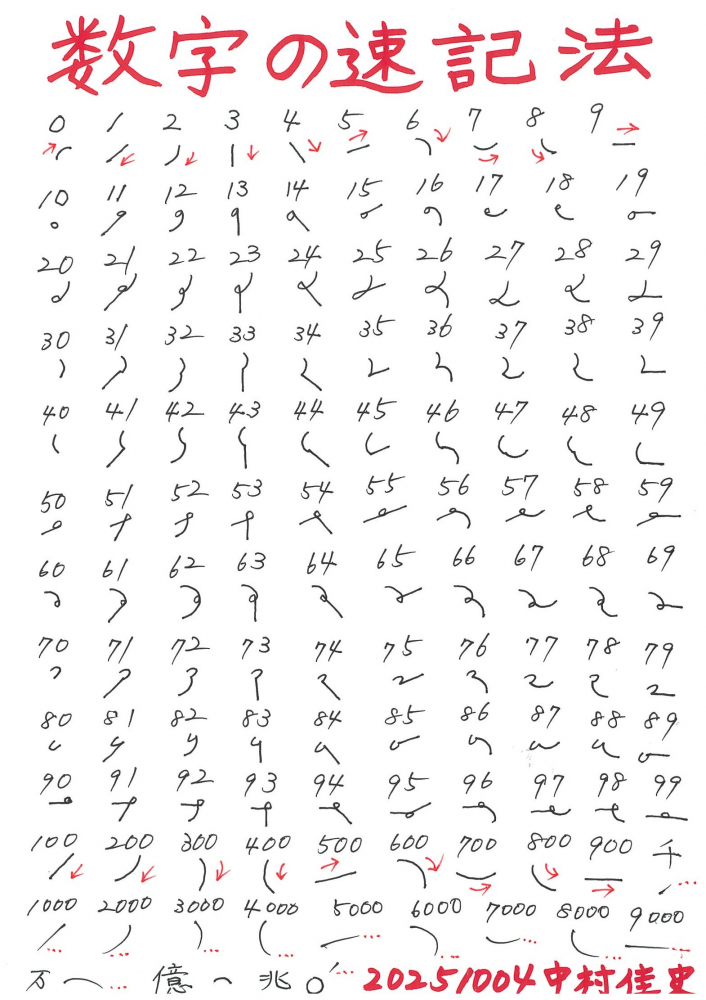 数字の速記法
0 1 2 3 4 5 6 7 8 9
10 11 12 13 14 15 16 17 18 19
20 21 22 23 24 25 26 27 28 29
30 31 32 33 34 35 36 37 38 39
40 41 42 43 44 45 46 47 48 49
50 51 52 53 54 55 56 57 58 59
60 61 62 63 64 65 66 67 68 69
70 71 72 73 74 75 76 77 78 79
80 81 82 83 84 85 86 87 88 89
90 91 92 93 94 95 96 97 98 99
100 200 300 400 500 600 700 800 900 千
1000 2000 3000 4000 5000 6000 7000 8000 9000
万 億 兆 20251004中村佳史